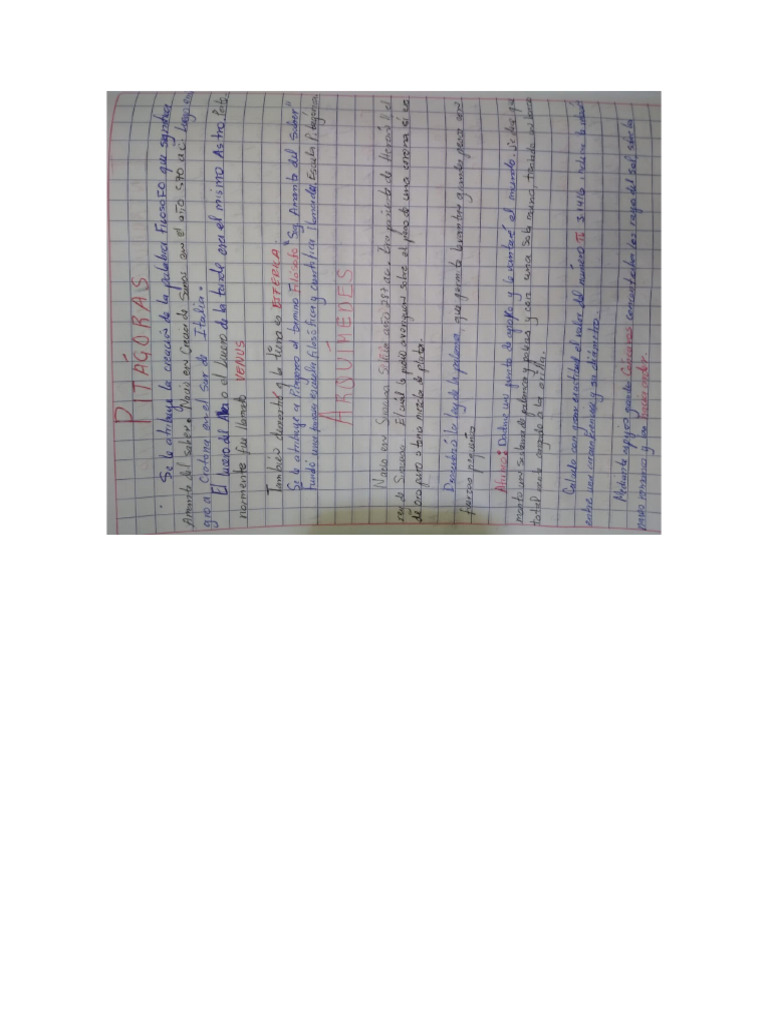 PITÁGORAS
Se le atribuye la creación de la palabra FILOSOFO que significa
Amante del Saber. Nacio en Grecia de Samos en el año 570 a.C; luego emi
gro a Crotona en el Sur de Italia.
El lucero del Alba o el Lucero de la tarde era el mismo Astro. Poste
riormente fue llamado VENUS
También demostró q la tierra es ESFERICA.
Se le atribuye a Pitagoras el termino Filósofo "Soy Amante del Saber"
fundó una nueva escuela filosófica y científica llamada Escuela Pitagórica.
ARQUÍMEDES
Nacio en Siracusa Sicilia año 287 a.c. Era pariente de Hierón II el
rey de Siracusa. El cuál le pidió averiguara sobre el peso de una corona si era
de oro puro o tenia mezcla de plata.
Descubrió la ley de la palanca, que permite levantar grandes pesos con
fuerzas pequeñas.
Afirmó: Dadme un punto de apoyo y levantaré el mundo. Se dice que
monto un sistema de palancas y poleas y con una sola mano, traslado un barco
totalmente cargado a la orilla.
Calculó con gran exactitud el valor del número π 3.1416, relacion
entre una circunferencia y su diámetro.
Mediante espejos grandes Cóncavos concentraba los rayos del sol sobre la